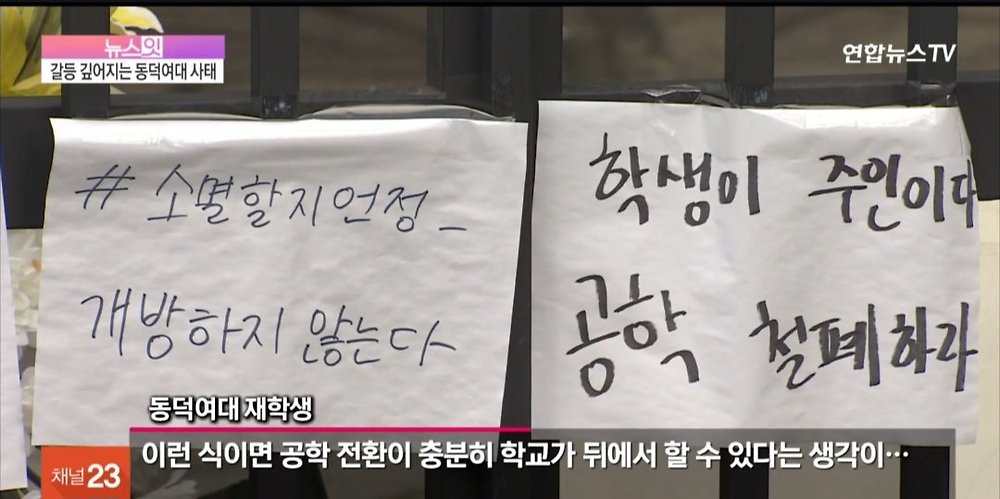 뉴스잇
갈등 깊어지는 동덕여대 사태
연합뉴스TV
# 소멸할지언정_
개방하지 않는다
학생이 주인이다
공학 철폐하라
동덕여대 재학생
이런 식이면 공학 전환이 충분히 학교가 뒤에서 할 수 있다는 생각이…
채널 23